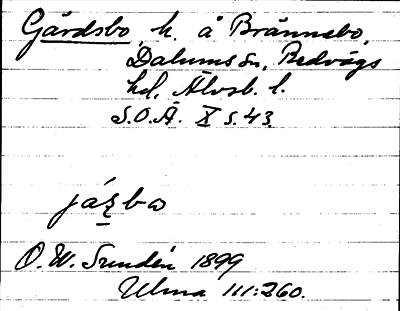 Gärdsbo, h. å Brännebo,
Dalums sn, Redvägs
hd, Älvsb. l.
S.O.Ä. X s. 43.
jáʐbo
O. W. Sundén 1899
Ulma 111:260.